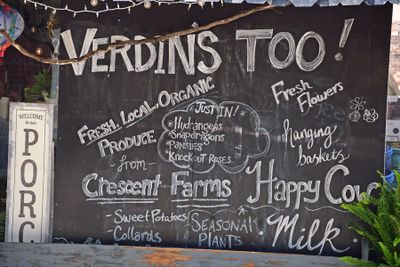 VERDIN'S TOO!
Fresh Flowers
FRESH, LOCAL, ORGANIC
PRODUCE
from
JUST IN!
*Hydrangeas
*Snapdragons
*Pansies
*Knockout Roses
hanging
baskets
CRESCENT FARMS
- Sweet Potatoes
- Collards
SEASONAL
PLANTS
Happy Cow
Milk
WELCOME
PORC